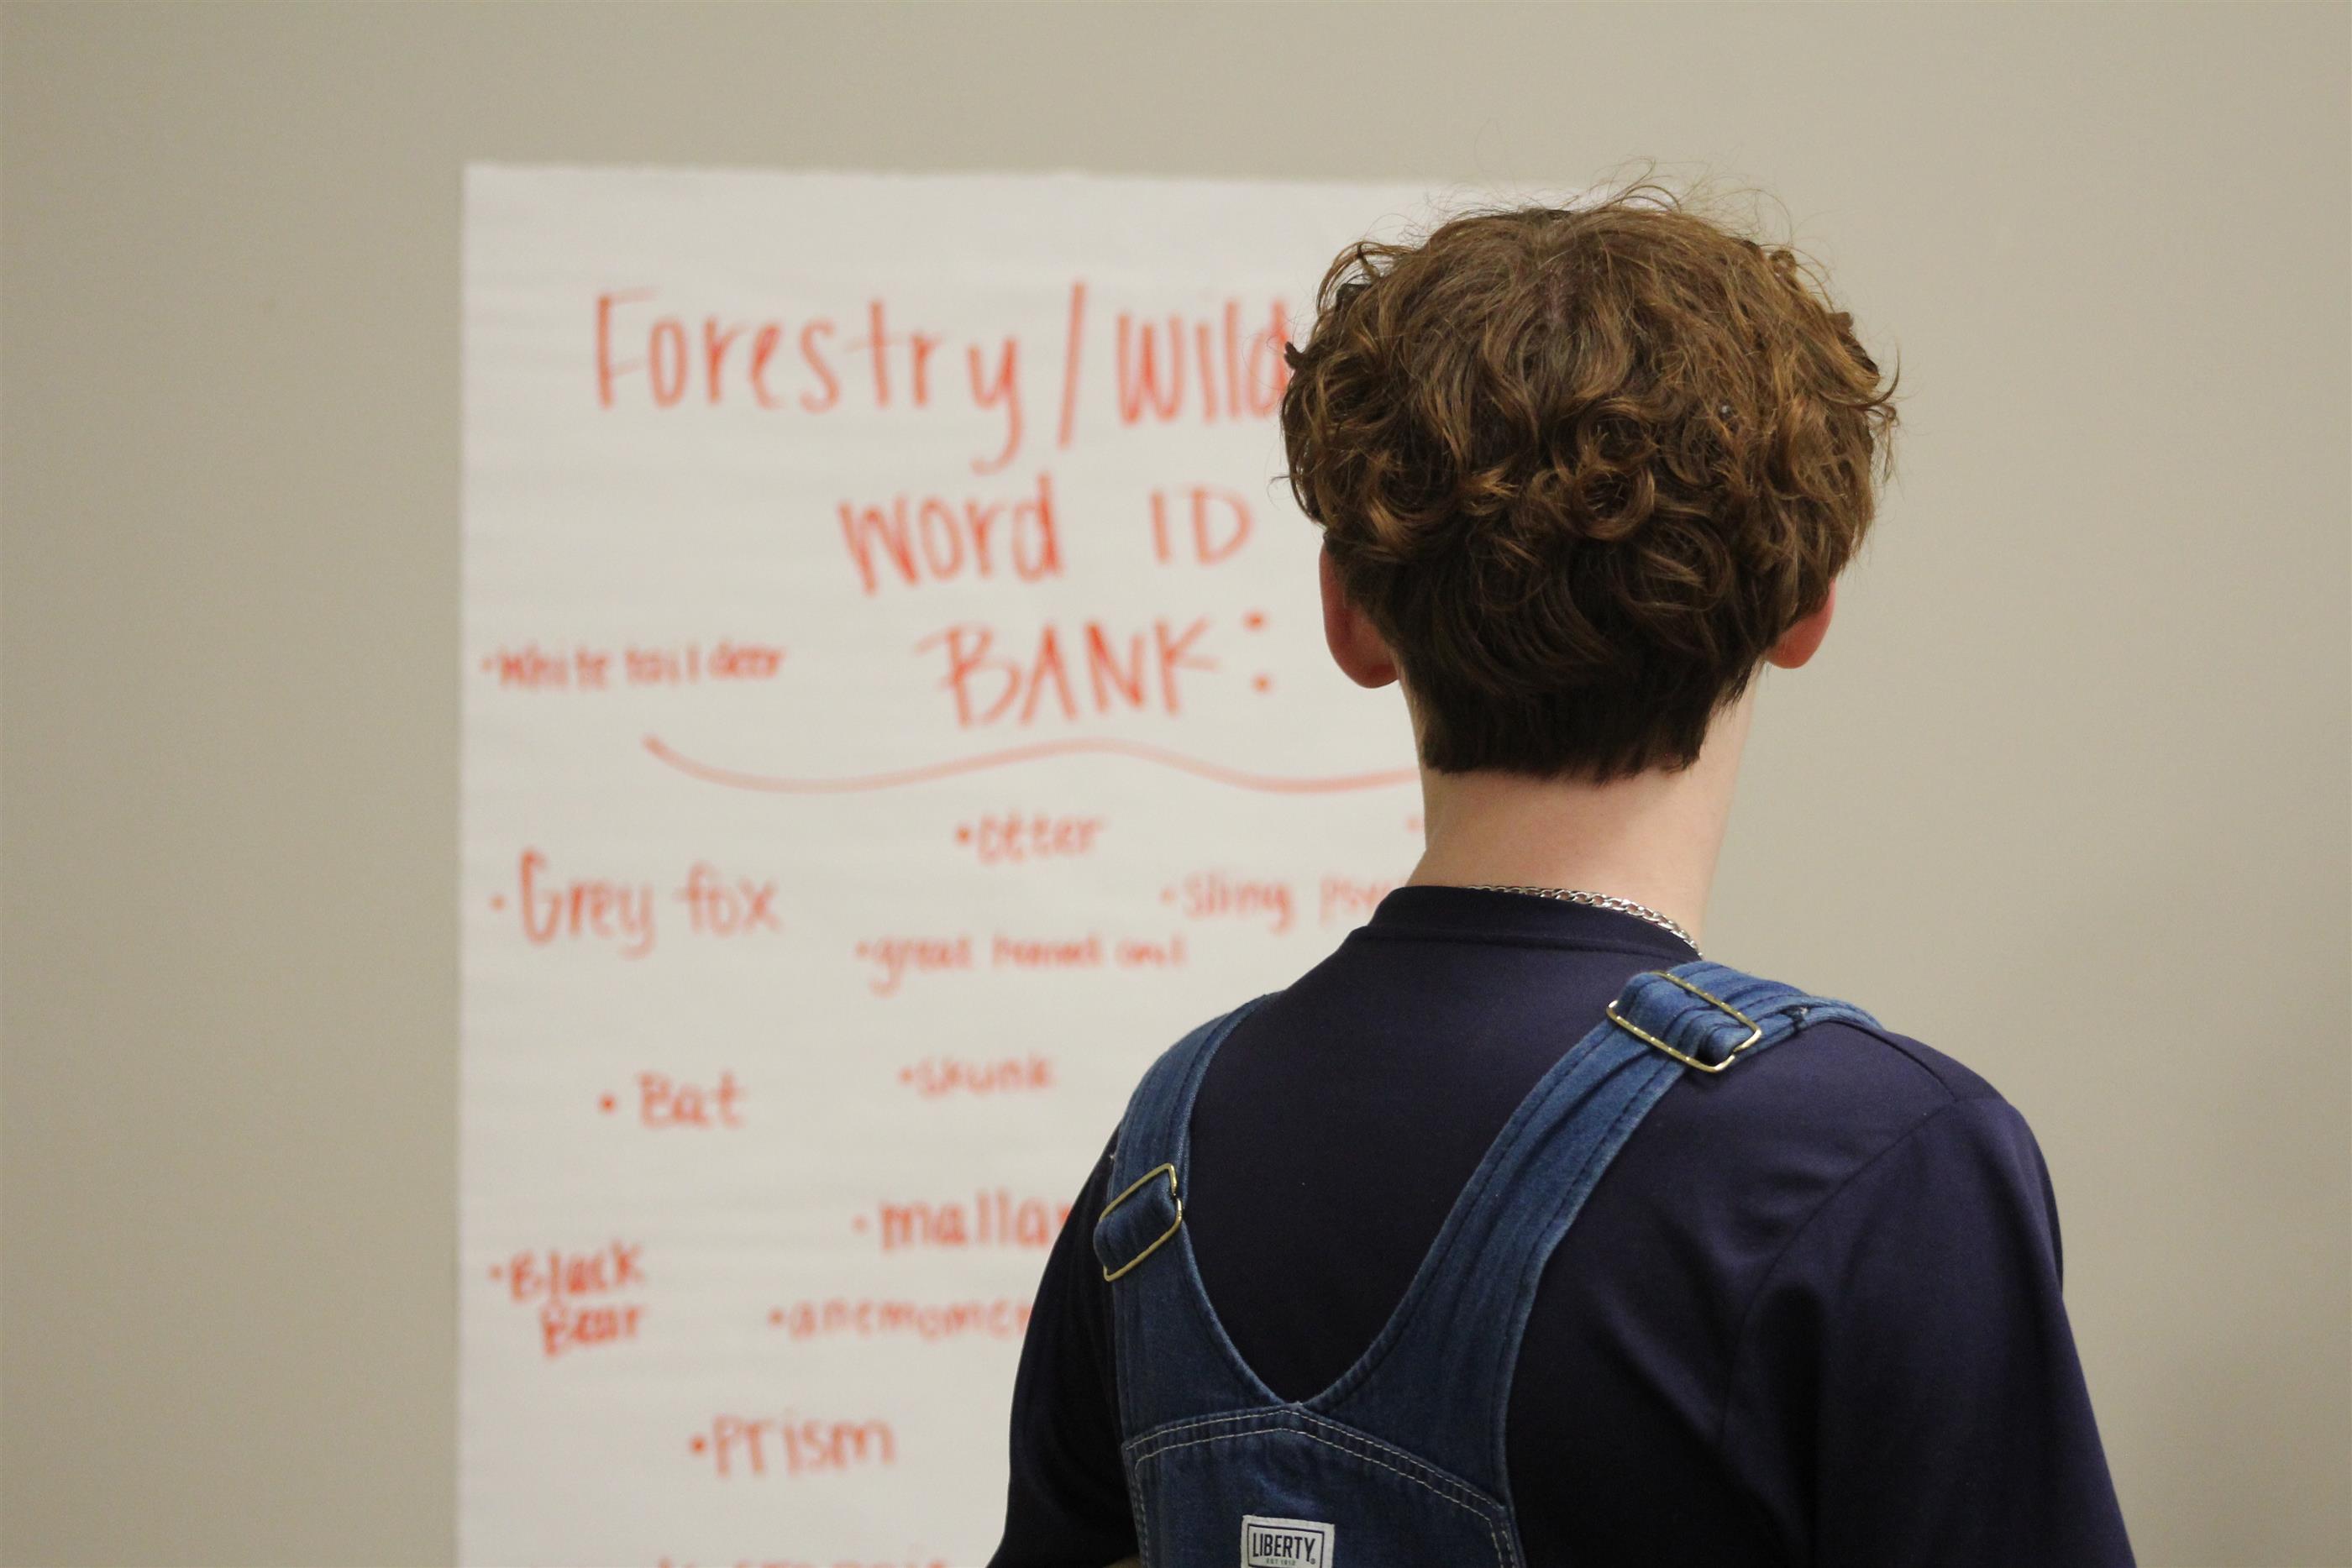 Forestry/Wild
Word ID
BANK:
•White tail deer
•Otter
•Grey fox
•Sling psy
•great horned owl
•Bat
•skunk
•malla
•Black
Bear
•anemome
•Prism
LIBERTY®
EST 1912